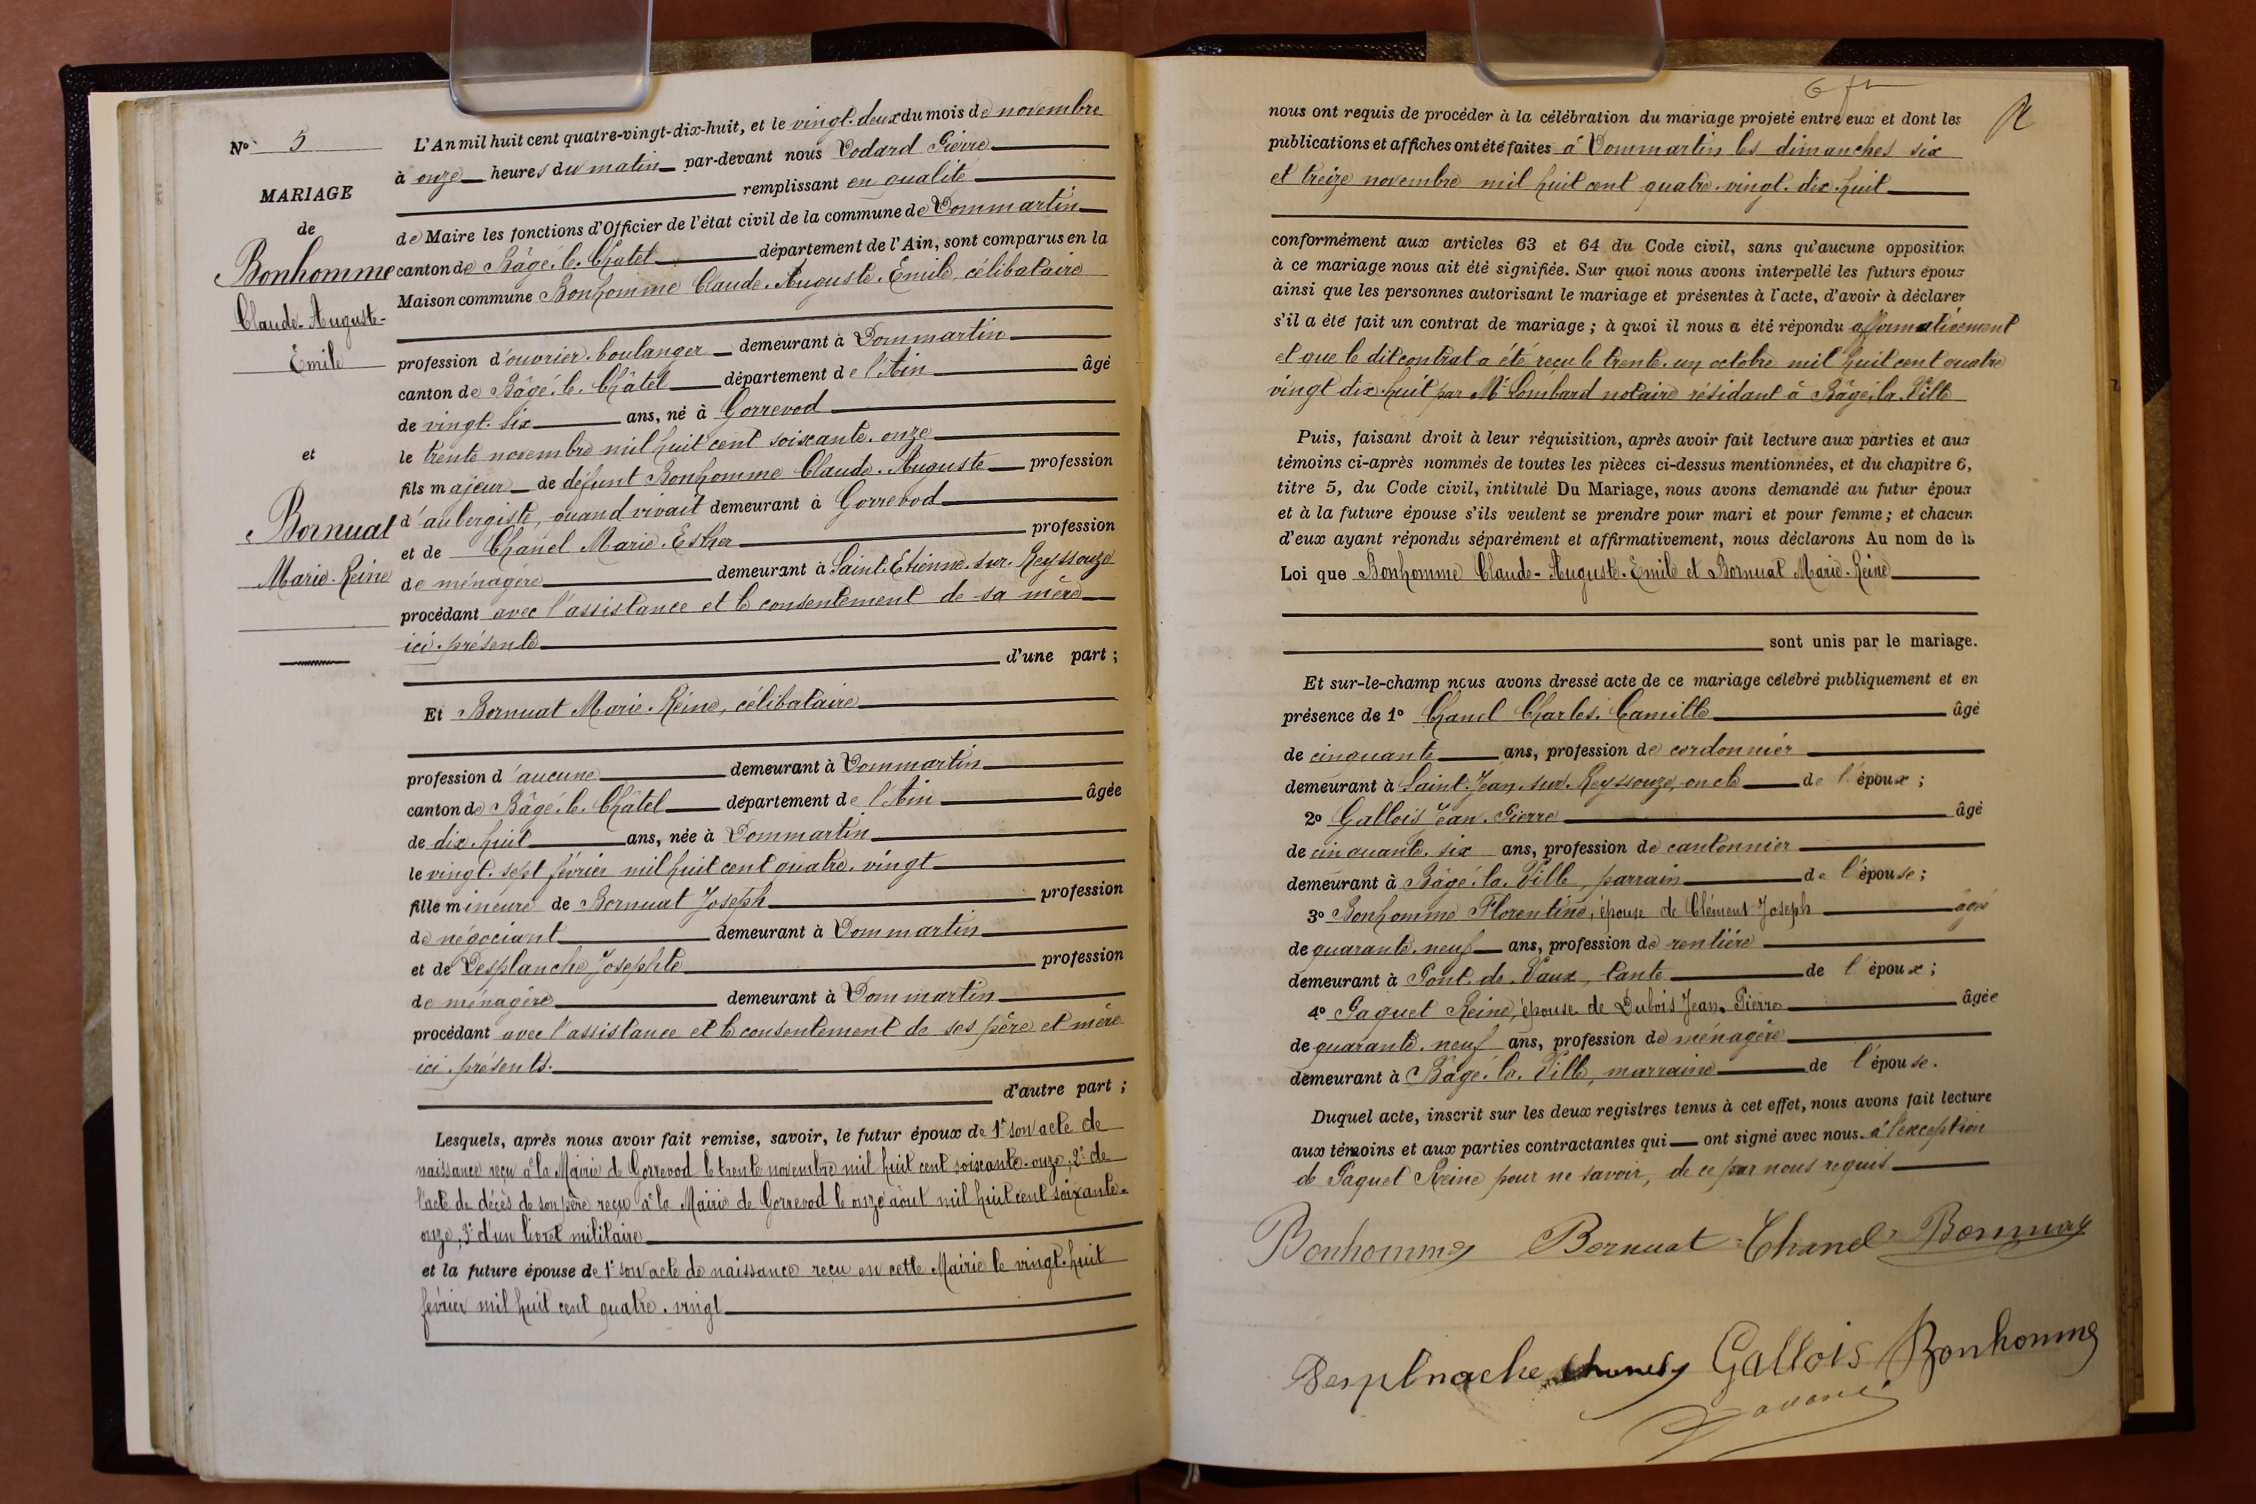 N° 5
MARIAGE
de
Bonhomme
Claude-Auguste-
Emile
et
Bornuat
Marie-Reine
L'An mil huit cent quatre-vingt-dix-huit, et le vingt-deux du mois de novembre
à onze heures du matin par-devant nous Vodard Pierre
remplissant en qualité
de Maire les fonctions d'Officier de l'état civil de la commune de Dommartin
canton de Bâgé-le-Châtel département de l'Ain, sont comparus en la
Maison commune Bonhomme Claude-Auguste-Emile, célibataire
profession d'ouvrier-boulanger demeurant à Dommartin
canton de Bâgé-le-Châtel département de l'Ain âgé
de vingt-six ans, né à Gorrevod
le trente novembre mil huit cent soixante-onze
fils majeur de défunt Bonhomme Claude-Auguste profession
d'aubergiste, quand vivait demeurant à Gorrevod
et de Chanel Marie-Esther profession
de ménagère demeurant à Saint-Etienne-sur-Reyssouze
procédant avec l'assistance et le consentement de sa mère
ici-présente
d'une part ;
Et Bornuat Marie-Reine, célibataire
profession d'aucune demeurant à Dommartin
canton de Bâgé-le-Châtel département de l'Ain âgée
de dix-huit ans, née à Dommartin
le vingt-sept février mil huit cent quatre-vingt
fille mineure de Bornuat Joseph profession
de négociant demeurant à Dommartin
et de Desplanche Josephte profession
de ménagère demeurant à Dommartin
procédant avec l'assistance et le consentement de ses père et mère
ici-présents.
d'autre part ;
Lesquels, après nous avoir fait remise, savoir, le futur époux de 1° son acte de
naissance reçu à la Mairie de Gorrevod le trente novembre mil huit cent soixante-onze; 2° de
l'acte de décès de son père reçu à la Mairie de Gorrevod le onze août mil huit cent soixante-
onze; 3° d'un livret militaire
et la future épouse de 1° son acte de naissance reçu en cette Mairie le vingt-huit
février mil huit cent quatre-vingt
nous ont requis de procéder à la célébration du mariage projeté entre eux et dont les
publications et affiches ont été faites à Dommartin les dimanches six
et treize novembre mil huit cent quatre-vingt-dix-huit
conformément aux articles 63 et 64 du Code civil, sans qu'aucune opposition
à ce mariage nous ait été signifiée. Sur quoi nous avons interpellé les futurs époux
ainsi que les personnes autorisant le mariage et présentes à l'acte, d'avoir à déclarer
s'il a été fait un contrat de mariage ; à quoi il nous a été répondu affirmativement
et que le dit contrat a été reçu le trente-un octobre mil huit cent quatre
vingt dix-huit par Me Lombard notaire résidant à Bâgé-la-Ville
Puis, faisant droit à leur réquisition, après avoir fait lecture aux parties et aux
témoins ci-après nommés de toutes les pièces ci-dessus mentionnées, et du chapitre 6,
titre 5, du Code civil, intitulé Du Mariage, nous avons demandé au futur époux
et à la future épouse s'ils veulent se prendre pour mari et pour femme ; et chacun
d'eux ayant répondu séparément et affirmativement, nous déclarons Au nom de la
Loi que Bonhomme Claude-Auguste-Emile et Bornuat Marie-Reine
sont unis par le mariage.
Et sur-le-champ nous avons dressé acte de ce mariage célébré publiquement et en
présence de 1° Chanel Charles-Camille âgé
de cinquante ans, profession de cordonnier
demeurant à Saint-Jean-sur-Reyssouze, oncle de l'époux ;
2° Gallois Jean-Pierre âgé
de cinquante-six ans, profession de cantonnier
demeurant à Bâgé-la-Ville, parrain de l'épouse ;
3° Bonhomme Florentine, épouse de Clément Joseph âgé
de quarante-neuf ans, profession de rentière
demeurant à Pont-de-Vaux, tante de l'époux ;
4° Paquet Reine, épouse de Dubois Jean-Pierre âgée
de quarante-neuf ans, profession de ménagère
demeurant à Bâgé-la-Ville, marraine de l'épouse.
Duquel acte, inscrit sur les deux registres tenus à cet effet, nous avons fait lecture
aux témoins et aux parties contractantes qui ont signé avec nous à l'exception
de Paquet Reine pour ne savoir, de ce par nous requis
Bonhomme Bornuat Chanel Bornuat
Desplnache Chanel Gallois Bonhomme